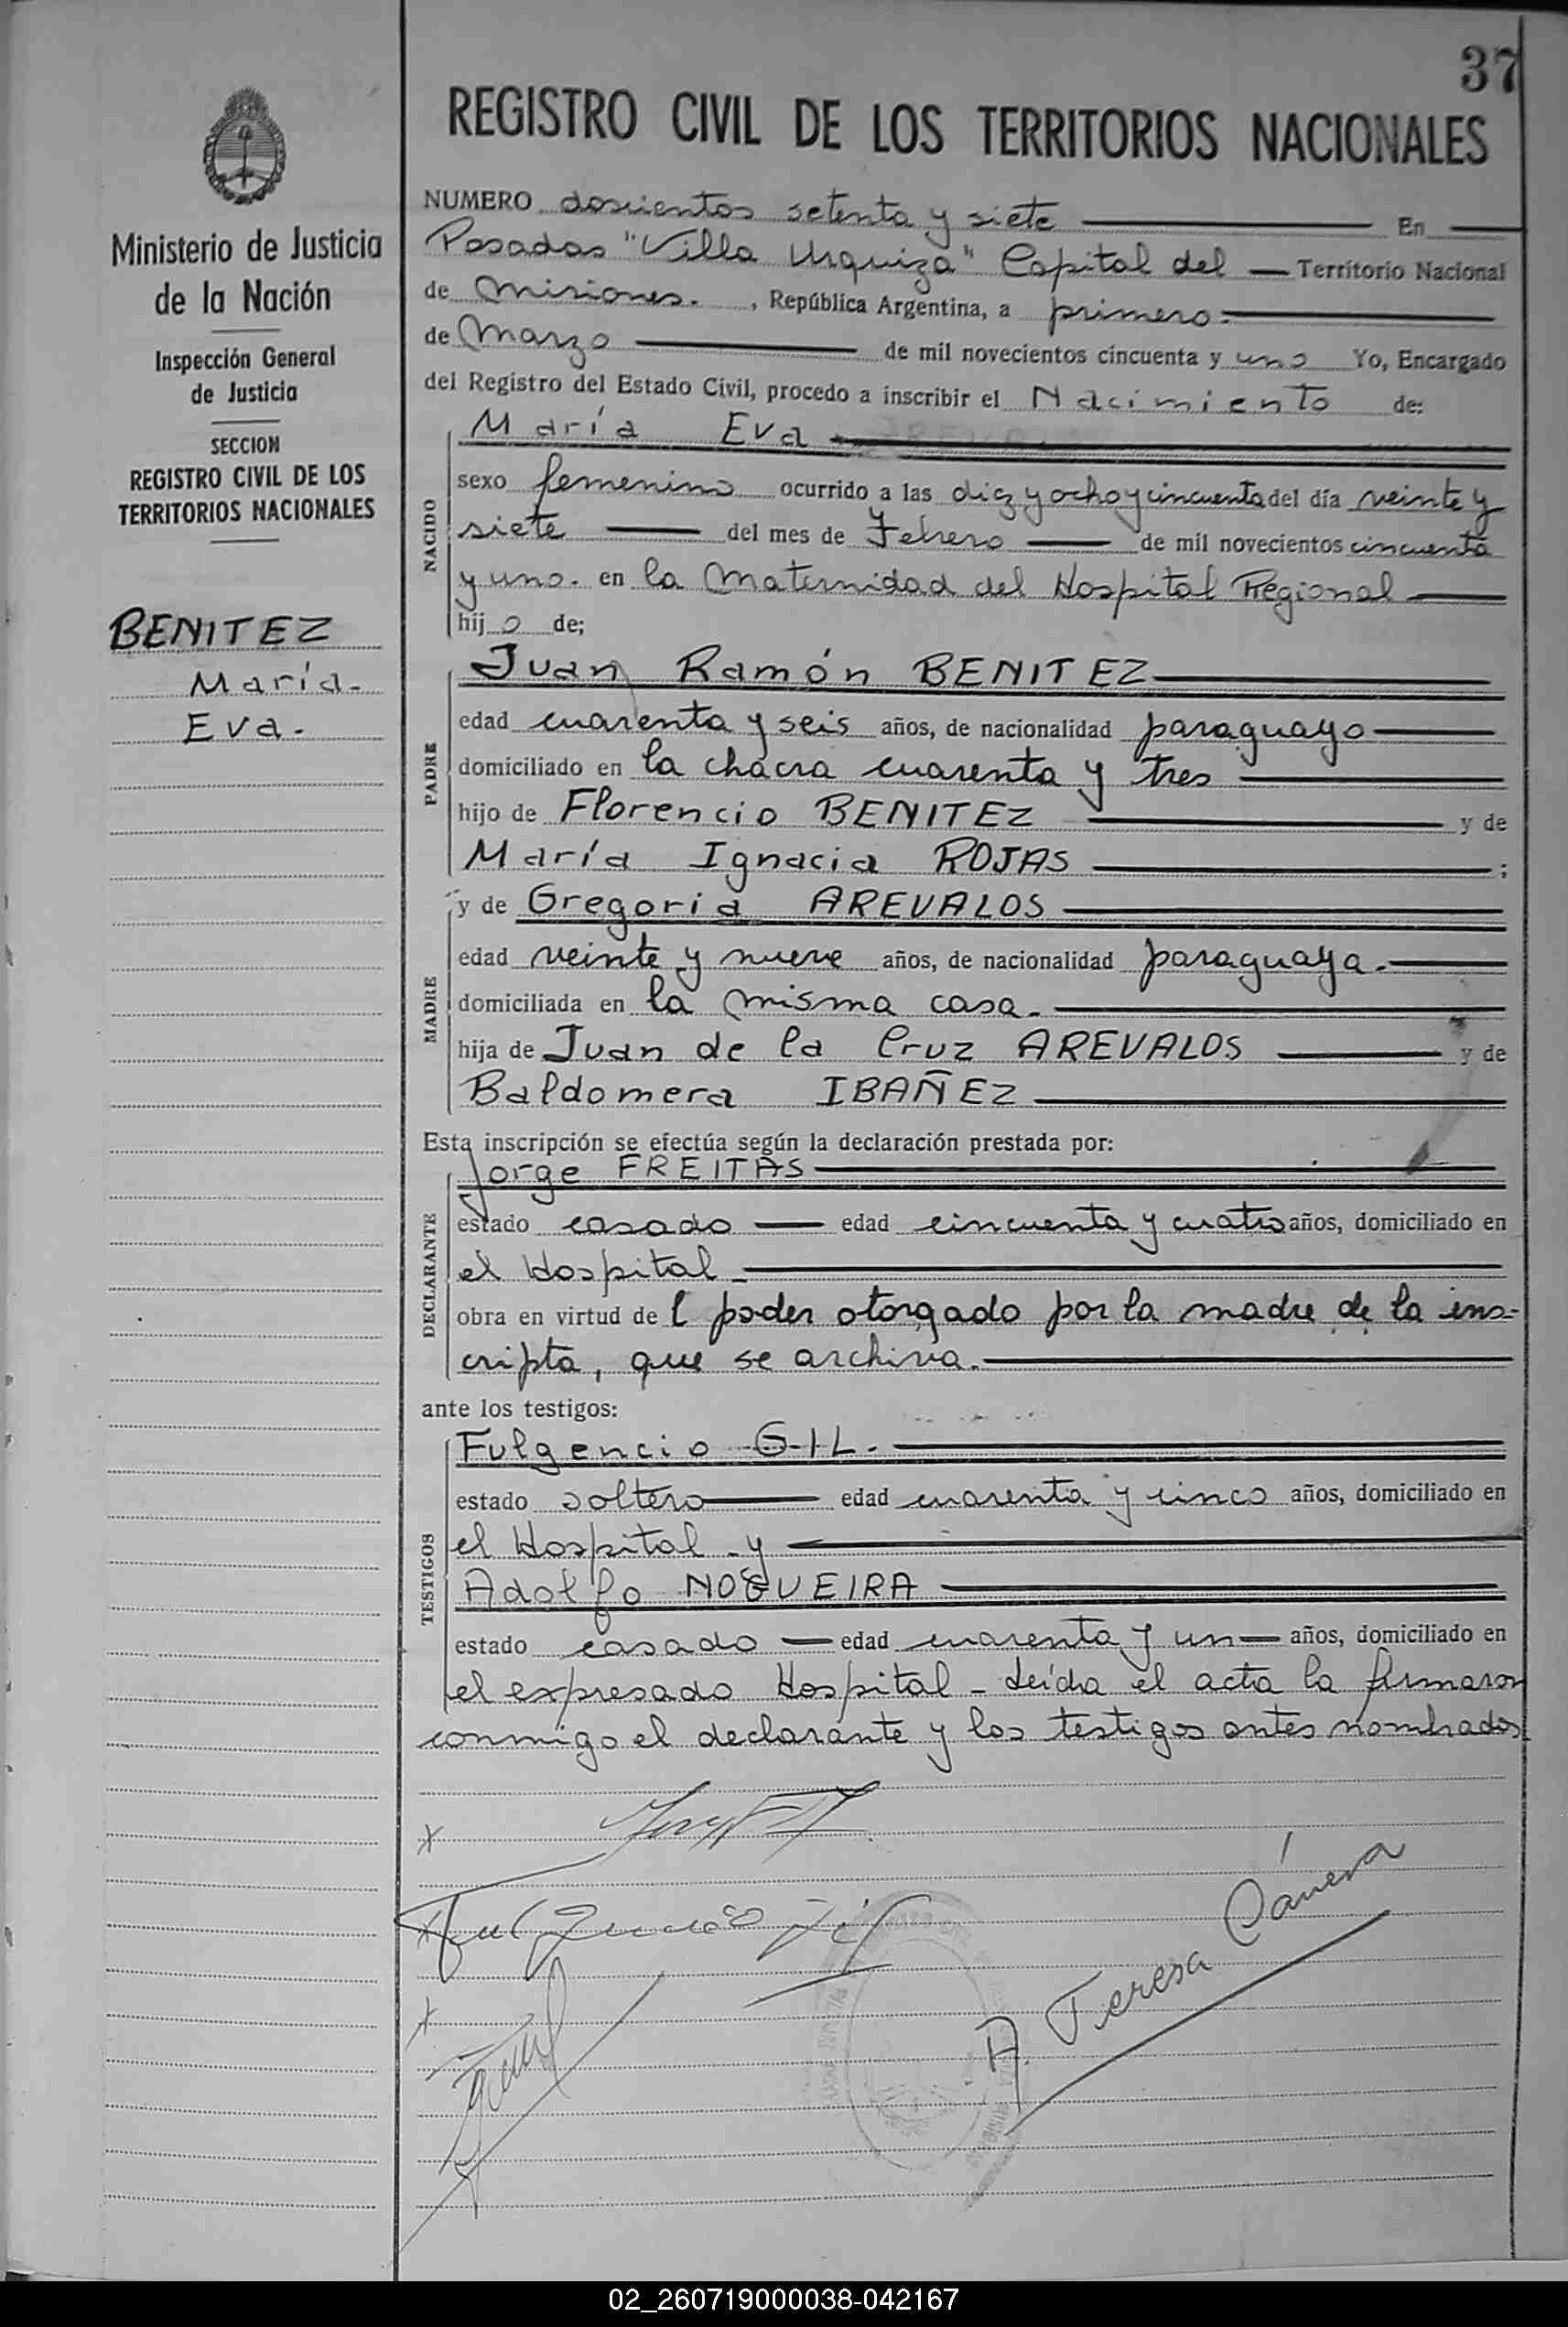 37
REGISTRO CIVIL DE LOS TERRITORIOS NACIONALES
Ministerio de Justicia
de la Nación
Inspección General
de Justicia
SECCION
REGISTRO CIVIL DE LOS
TERRITORIOS NACIONALES
BENITEZ
María.
Eva.
NUMERO doscientos setenta y siete En
Posadas "Villa Urquiza" Capital del Territorio Nacional
de Misiones. , República Argentina, a primero.
de Marzo de mil novecientos cincuenta y uno Yo, Encargado
del Registro del Estado Civil, procedo a inscribir el Nacimiento de:
NACIDO
María Eva
sexo femenino ocurrido a las diez y ocho y cincuenta del día veinte y
siete del mes de Febrero de mil novecientos cincuenta
y uno. en la Maternidad del Hospital Regional
hij o de;
PADRE
Juan Ramón BENITEZ
edad cuarenta y seis años, de nacionalidad paraguayo
domiciliado en la chacra cuarenta y tres
hijo de Florencio BENITEZ y de
María Ignacia ROJAS ;
MADRE
y de Gregoria AREVALOS
edad veinte y nueve años, de nacionalidad paraguaya.
domiciliada en la misma casa.
hija de Juan de la Cruz AREVALOS y de
Baldomera IBAÑEZ
Esta inscripción se efectúa según la declaración prestada por:
DECLARANTE
Jorge FREITAS
estado casado edad cincuenta y cuatro años, domiciliado en
el Hospital
obra en virtud de l poder otorgado por la madre de la ins-
cripta, que se archiva.
ante los testigos:
TESTIGOS
Fulgencio GIL.
estado soltero edad cuarenta y cinco años, domiciliado en
el Hospital - y
Adolfo NOGUEIRA
estado casado edad cuarenta y un años, domiciliado en
el expresado Hospital - Leída el acta la firmaron
conmigo el declarante y los testigos antes nombrados
x
x Fulgencio Gil
x
A. Teresa Cánera
02_260719000038-042167